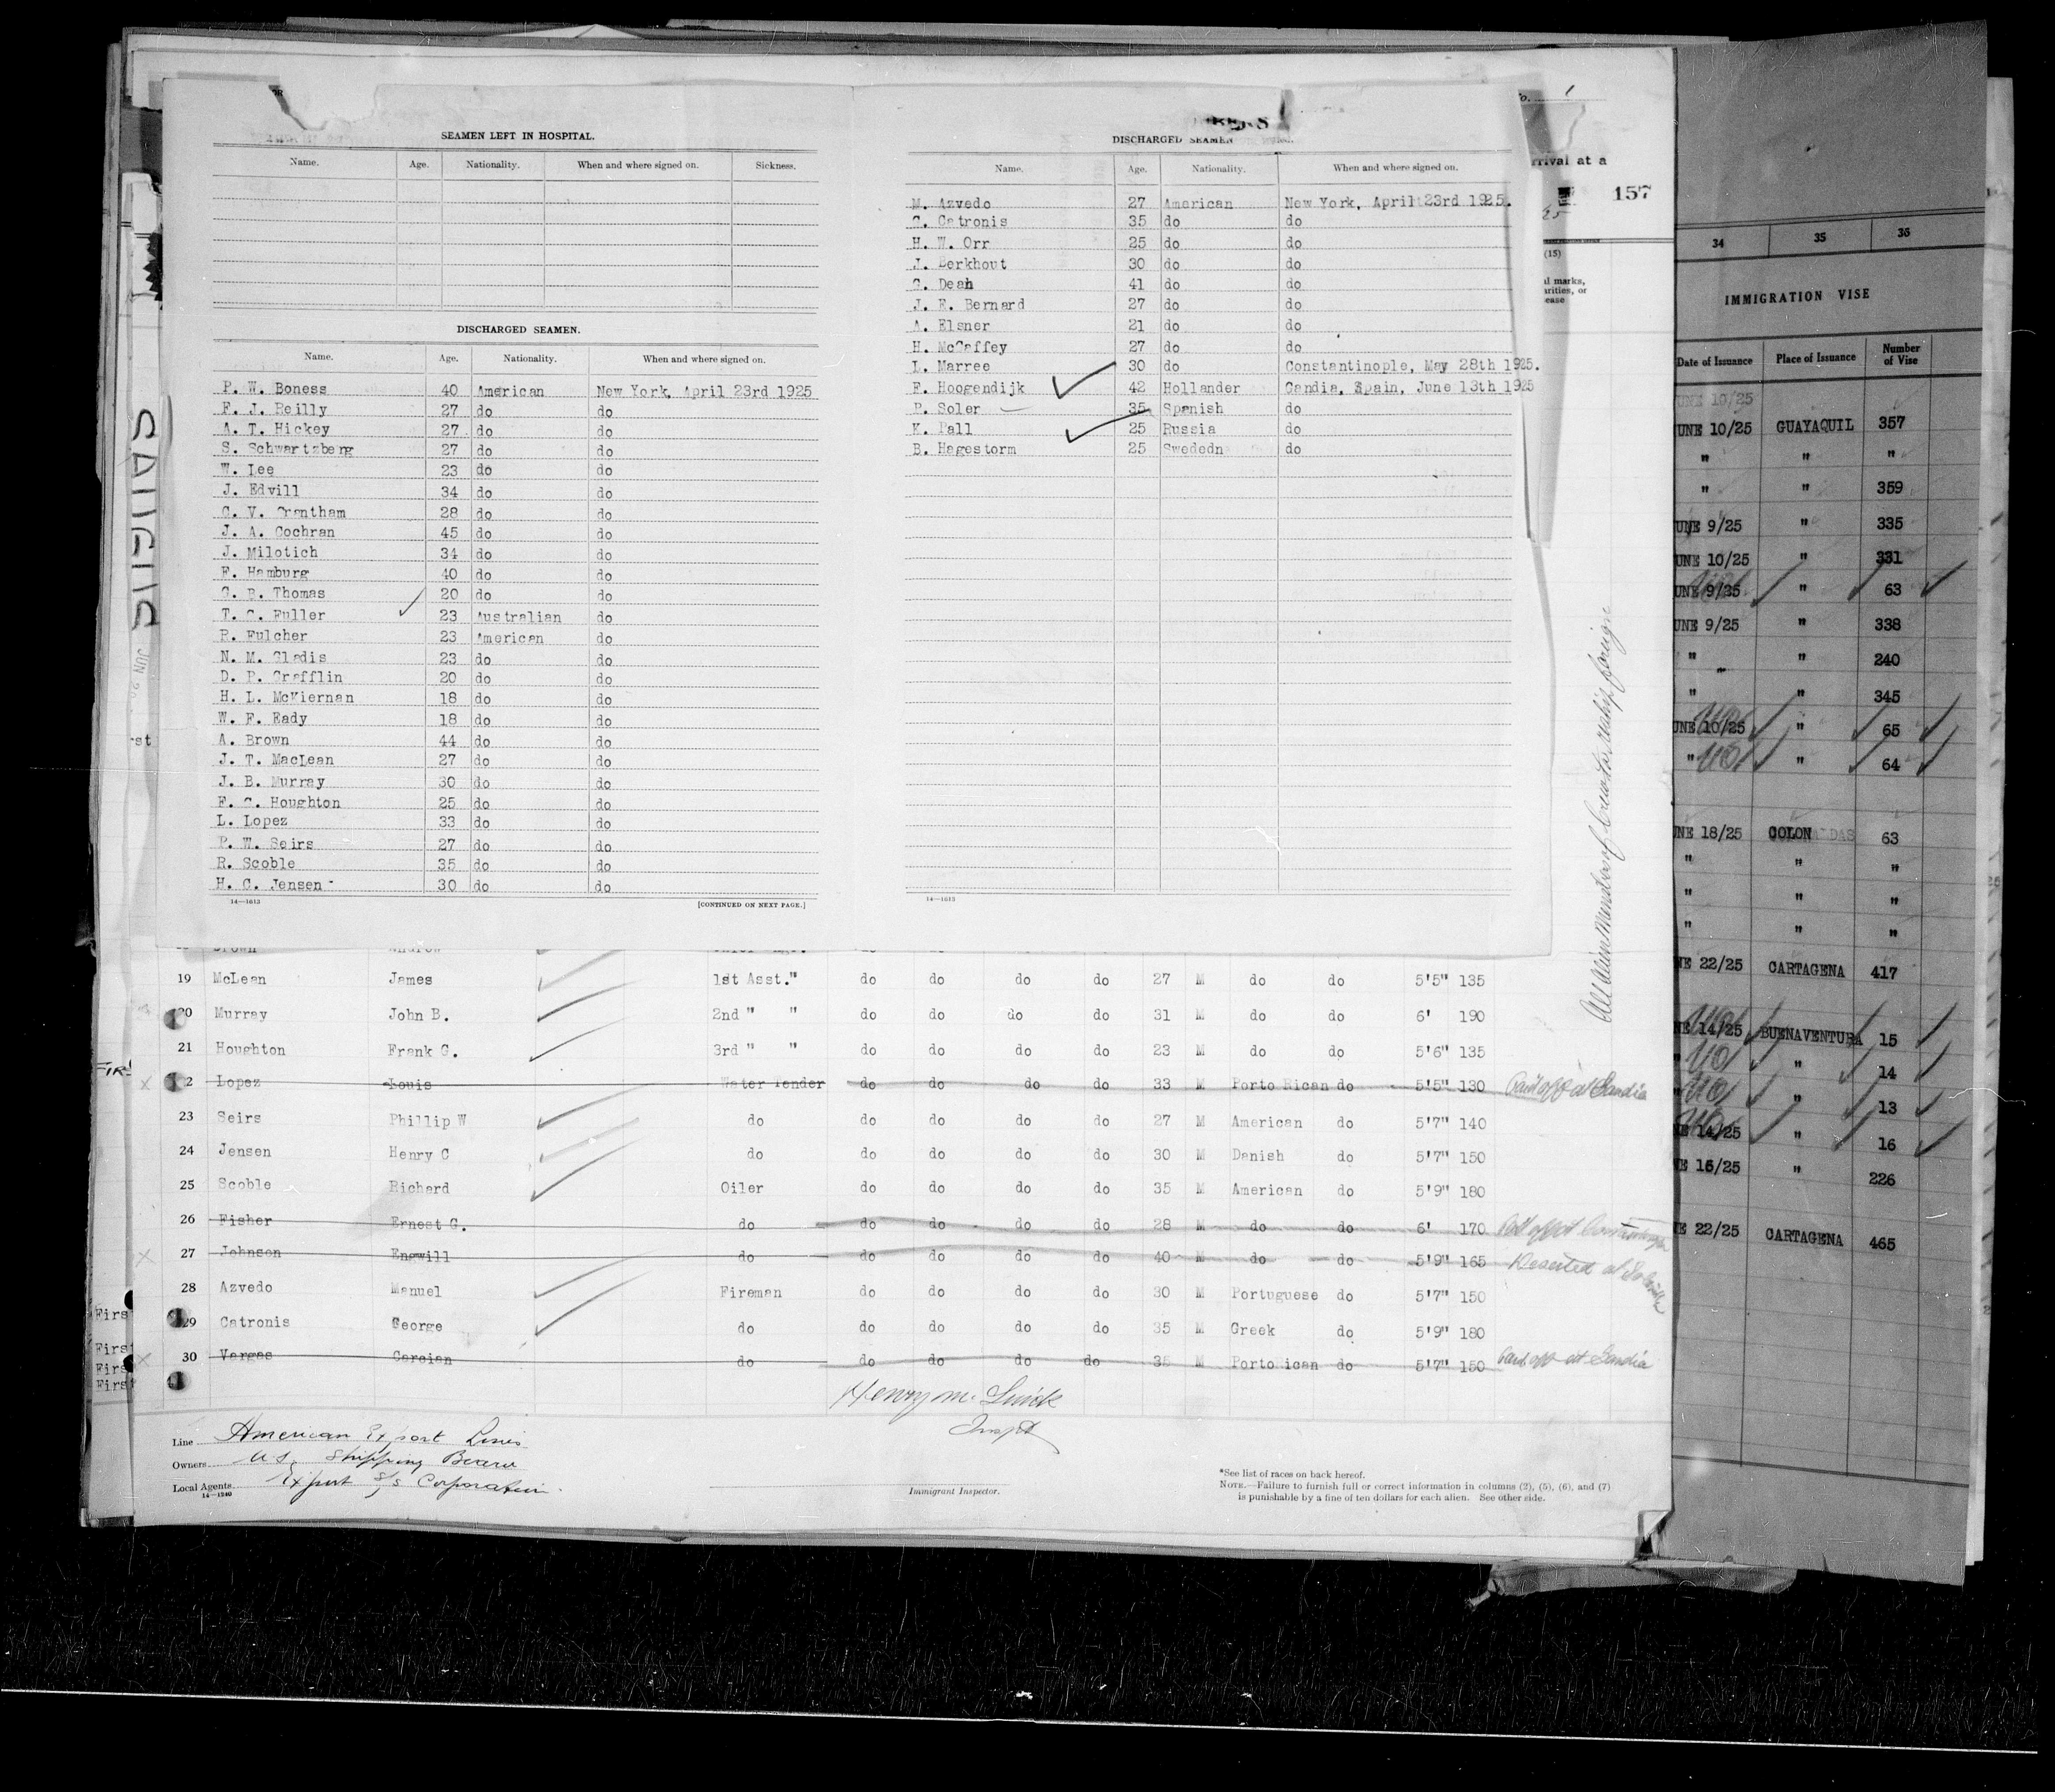 SEAMEN LEFT IN HOSPITAL.
Name. Age. Nationality. When and where signed on. Sickness.
DISCHARGED SEAMEN.
Name. Age. Nationality. When and where signed on.
P. W. Boness 40 American New York, April 23rd 1925
F. J. Reilly 27 do do
A. T. Hickey 27 do do
S. Schwartzberg 27 do do
W. Lee 23 do do
J. Edvill 34 do do
C. V. Grantham 28 do do
J. A. Cochran 45 do do
J. Milotich 34 do do
F. Hamburg 40 do do
G. R. Thomas 20 do do
T. C. Fuller 23 Australian do
R. Fulcher 23 American do
N. M. Gladis 23 do do
D. P. Grafflin 20 do do
H. L. McKiernan 18 do do
W. F. Eady 18 do do
A. Brown 44 do do
J. T. MacLean 27 do do
J. B. Murray 30 do do
F. G. Houghton 25 do do
L. Lopez 33 do do
P. W. Seirs 27 do do
R. Scoble 35 do do
H. C. Jensen 30 do do
14—1613 [CONTINUED ON NEXT PAGE.]
DISCHARGED SEAMEN
Name. Age. Nationality. When and where signed on.
M. Azvedo 27 American New York, April 23rd 1925.
G. Catronis 35 do do
H. W. Orr 25 do do
J. Berkhout 30 do do
G. Dean 41 do do
J. E. Bernard 27 do do
A. Elsner 21 do do
H. McCaffey 27 do do
L. Marree 30 do Constantinople, May 28th 1925.
F. Hoogendijk 42 Hollander Gandia, Spain, June 13th 1925
P. Soler 35 Spanish do
K. Pall 25 Russia do
B. Hagestorm 25 Swededn do
14—1613
No. 1
rrival at a
157
25
(15)
al marks,
arities, or
ease
All Alien Members of Crew to reship foreign
Brown Andrew
19 McLean James 1st Asst." do do do do 27 M do do 5'5" 135
20 Murray John B. 2nd " " do do do do 31 M do do 6' 190
21 Houghton Frank G. 3rd " " do do do do 23 M do do 5'6" 135
22 Lopez Louis Water Tender do do do do 33 M Porto Rican do 5'5" 130 Paid off at Gandia
23 Seirs Phillip W do do do do do 27 M American do 5'7" 140
24 Jensen Henry C do do do do do 30 M Danish do 5'7" 150
25 Scoble Richard Oiler do do do do 35 M American do 5'9" 180
26 Fisher Ernest G. do do do do do 28 M do do 6' 170
27 Johnson Engwill do do do do do 40 M do do 5'9" 165 Deserted at
28 Azvedo Manuel Fireman do do do do 30 M Portuguese do 5'7" 150
29 Catronis George do do do do do 35 M Greek do 5'9" 180
30 Vargas Carcian do do do do do 35 M Porto ican do 5'7" 150 Paid off at Gandia
Henry M.
Insptr
Line American Export Lines
Owners U S Shipping Board
Local Agents Export S/S Corporation.
14—1240
Immigrant Inspector.
*See list of races on back hereof.
NOTE.—Failure to furnish full or correct information in columns (2), (5), (6), and (7)
is punishable by a fine of ten dollars for each alien. See other side.
34 35 36
IMMIGRATION VISE
Date of Issuance Place of Issuance Number of Vise
UNE 10/25
UNE 10/25 GUAYAQUIL 357
" " "
" " 359
UNE 9/25 " 335
UNE 10/25 " 331
UNE 9/25 " 63
UNE 9/25 " 338
" " 240
" 345
UNE 10/25 " 65
" " 64
UNE 18/25 COLON 63
" " "
" " "
" " "
NE 22/25 CARTAGENA 417
NE 14/25 BUENAVENTURA 15
" 14
" 13
NE 14/25 " 16
NE 16/25 " 226
NE 22/25 CARTAGENA 465
First
First
First
First